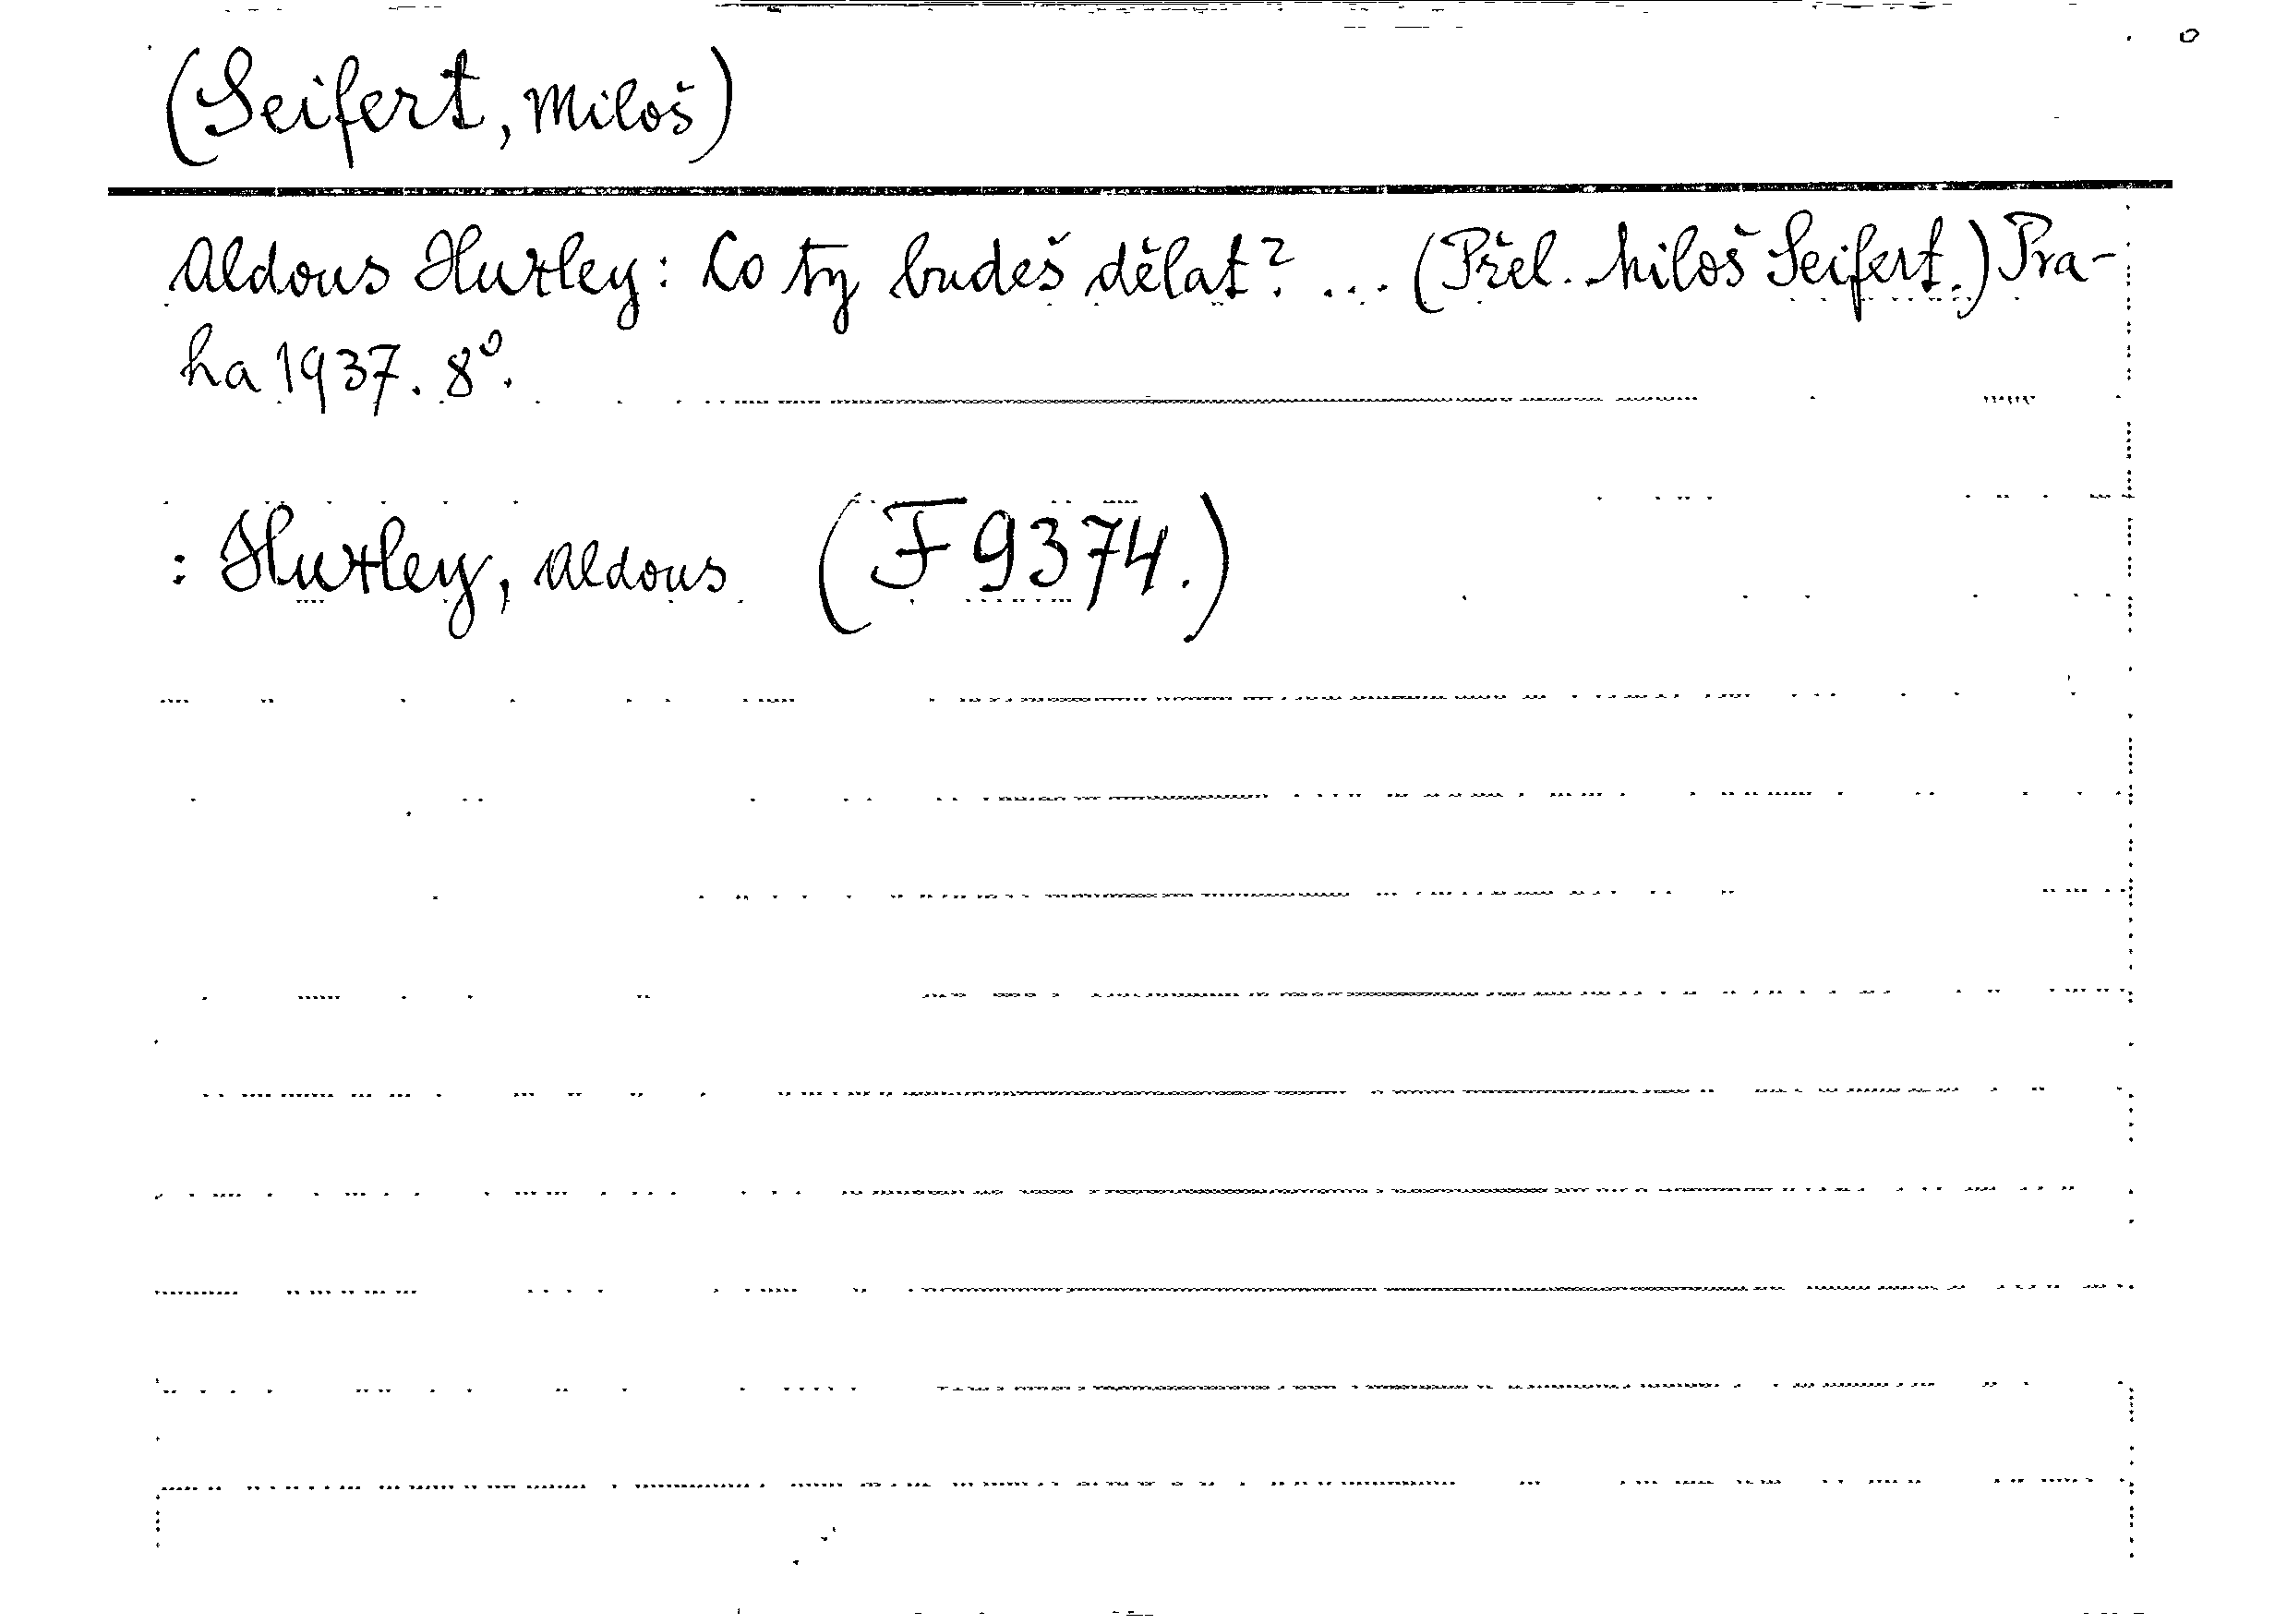 (Seifert, Miloš)
Aldous Huxley: Co ty budeš dělat? ... (Přel. Miloš Seifert.) Pra-
ha 1937. 8°.
: Huxley, Aldous (F 9374.)